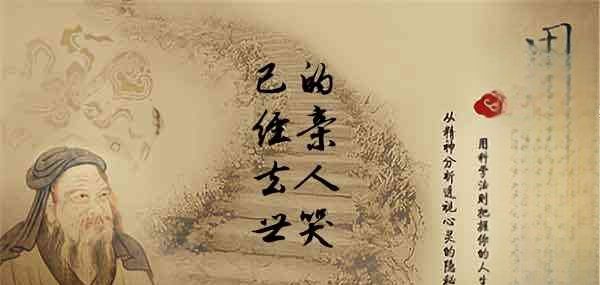 已经去世
的亲人哭
从精神分析透视心灵的隐秘
用科学法则把握你的人生